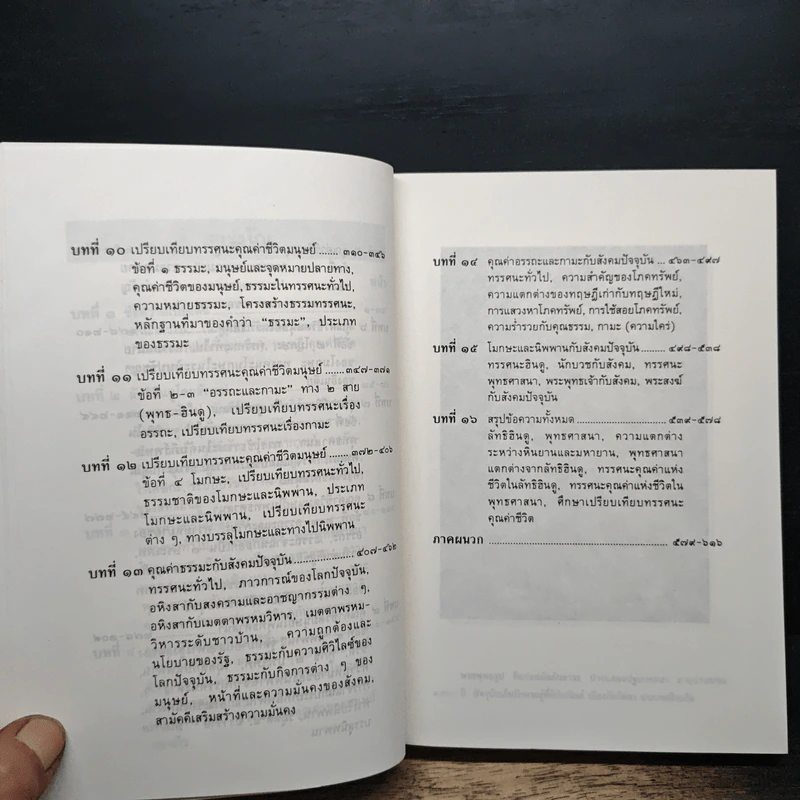 บทที่ ๑๐ เปรียบเทียบทรรศนะคุณค่าชีวิตมนุษย์ ....... ๓๑๐-๓๔๖
ข้อที่ ๑ ธรรมะ, มนุษย์และจุดหมายปลายทาง,
คุณค่าชีวิตของมนุษย์, ธรรมะในทรรศนะทั่วไป,
ความหมายธรรมะ, โครงสร้างธรรมทรรศนะ,
หลักฐานที่มาของคำว่า “ธรรมะ”, ประเภท
ของธรรมะ
บทที่ ๑๑ เปรียบเทียบทรรศนะคุณค่าชีวิตมนุษย์ ....... ๓๔๗-๓๗๑
ข้อที่ ๒-๓ “อรรถะและกามะ” ทาง ๒ สาย
(พุทธ-ฮินดู), เปรียบเทียบทรรศนะเรื่อง
อรรถะ, เปรียบเทียบทรรศนะเรื่องกามะ
บทที่ ๑๒ เปรียบเทียบทรรศนะคุณค่าชีวิตมนุษย์ ....... ๓๗๒-๔๐๖
ข้อที่ ๔ โมกษะ, เปรียบเทียบทรรศนะทั่วไป,
ธรรมชาติของโมกษะและนิพพาน, ประเภท
โมกษะและนิพพาน, เปรียบเทียบทรรศนะ
ต่าง ๆ, ทางบรรลุโมกษะและทางไปนิพพาน
บทที่ ๑๓ คุณค่าธรรมะกับสังคมปัจจุบัน .................... ๔๐๗-๔๖๒
ทรรศนะทั่วไป, ภาวการณ์ของโลกปัจจุบัน,
อหิงสากับสงครามและอาชญากรรมต่าง ๆ,
อหิงสากับเมตตาพรหมวิหาร, เมตตาพรหม-
วิหารระดับชาวบ้าน, ความถูกต้องและ
นโยบายของรัฐ, ธรรมะกับความศิวิไลซ์ของ
โลกปัจจุบัน, ธรรมะกับกิจการต่าง ๆ ของ
มนุษย์, หน้าที่และความมั่นคงของสังคม,
สามัคคีเสริมสร้างความมั่นคง
บทที่ ๑๔ คุณค่าอรรถะและกามะกับสังคมปัจจุบัน ... ๔๖๓-๔๙๗
ทรรศนะทั่วไป, ความสำคัญของโภคทรัพย์,
ความแตกต่างของทฤษฎีเก่ากับทฤษฎีใหม่,
การแสวงหาโภคทรัพย์, การใช้สอยโภคทรัพย์,
ความร่ำรวยกับคุณธรรม, กามะ (ความใคร่)
บทที่ ๑๕ โมกษะและนิพพานกับสังคมปัจจุบัน ......... ๔๙๘-๕๓๘
ทรรศนะฮินดู, นักบวชกับสังคม, ทรรศนะ
พุทธศาสนา, พระพุทธเจ้ากับสังคม, พระสงฆ์
กับสังคมปัจจุบัน
บทที่ ๑๖ สรุปข้อความทั้งหมด ............................ ๕๓๙-๕๗๘
ลัทธิฮินดู, พุทธศาสนา, ความแตกต่าง
ระหว่างหินยานและมหายาน, พุทธศาสนา
แตกต่างจากลัทธิฮินดู, ทรรศนะคุณค่าแห่ง
ชีวิตในลัทธิฮินดู, ทรรศนะคุณค่าแห่งชีวิตใน
พุทธศาสนา, ศึกษาเปรียบเทียบทรรศนะ
คุณค่าชีวิต
ภาคผนวก .................................................... ๕๗๙-๖๑๖